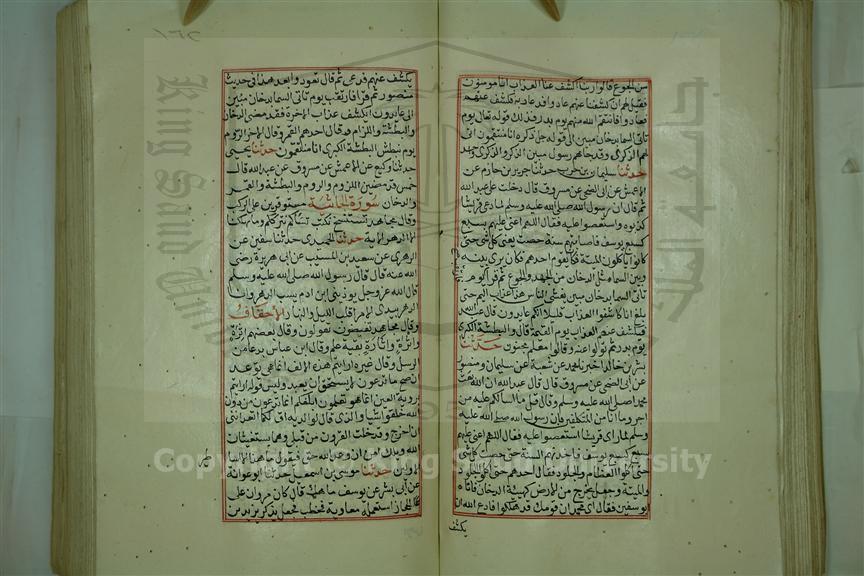 من الجوع قالوا ربنا اكشف عنا العذاب انا مومنون
فقيل له ان كشفنا عنهم عادوا فدعا ربه فكشف عنهم
فعادوا فانتقم الله منهم يوم بدر فذلك قوله تعالى يوم
تاتي السما بدخان مبين الى قوله جل ذكره انا منتقمون انى
لهم الذكرى وقد جاهم رسول مبين الذكر والذكرى واحد
حدثنا سليمان بن حرب حدثنا جرير بن حازم عن
الاعمش عن ابي الضحى عن مسروق قال دخلت على عبد الله
ثم قال ان رسول الله صلى الله عليه وسلم لما دعى قريشا
كذبوه واستعصوا عليه فقال اللهم اعني عليهم بسبع
كسبع يوسف فاصابتهم سنة حصت يعني كل شي حتى
كانوا ياكلون الميتة فكان يقوم احدهم فكان يرى بينه
وبين السما مثل الدخان من الجهد والجوع ثم قرا يوم
تاتي السما بدخان مبين يغشى الناس هذا عذاب اليم حتى
بلغ انا كاشفوا العذاب قليلا انكم عايدون قال عبد الله
افيكشف عنهم العذاب يوم القيمة قال والبطشة الكبرى
يوم بدر ثم تولوا عنه وقالوا معلم مجنون حدثنا
بشر بن خالد اخبرنا محمد عن شعبة عن سليمان ومنصور
عن ابي الضحى عن مسروق قال قال عبد الله ان الله بعث
محمدا صلى الله عليه وسلم وقال قل ما اسالكم عليه من
اجر وما انا من المتكلفين فان رسول الله صلى الله عليه
وسلم لما راى قريشا استعصوا عليه فقال اللهم اعني عليهم
بسبع كسبع يوسف فاخذتهم السنة حتى حصت كل شي
حتى اكلوا العظام والجلود فقال احدهم حتى اكلوا الجلود
والميتة وجعل يخرج من الارض كهيئة الدخان فاتاه
ابو سفين فقال اي محمد ان قومك قد هلكوا فادع الله ان
يكشف
١٦٢
يكشف عنهم فدعى ثم قال تعود وا بعد هذا في حديث
منصور ثم قرا فارتقب يوم تاتي السما بدخان مبين
الى عايدون ايكشف عذاب الاخرة فقد مضى الدخان
والبطشة واللزام وقال احدهم القمر وقال الاخر الروم
يوم نبطش البطشة الكبرى انا منتقمون حدثنا يحيى
حدثنا وكيع عن الاعمش عن مسلم عن مسروق عن عبد الله قال
خمس قد مضين اللزوم والروم والبطشة والقمر
والدخان سورة الجاثية مستوفزين على الركب
وقال مجاهد نستنسخ نكتب ننساكم نتركم وما يهلكنا
الا الدهر الاية حدثنا الحميدي حدثنا سفين عن
الزهري عن سعيد بن المسيب عن ابي هريرة رضي
الله عنه قال قال رسول الله صلى الله عليه وسلم
قال الله عز وجل يوذيني ابن ادم يسب الدهر وانا
الدهر بيدي الامر اقلب الليل والنهار الاحقاف
وقال مجاهد تفيضون تقولون وقال بعضهم اثرة
واثرة واثارة بقية علم وقال ابن عباس بدعا من
الرسل وقال غيره ارايتم هذه الالف انما هي توعد
ان صح ما تدعون لا يستحق ان يعبد وليس قوله ارايتم
بروية العين انما هو تعلمون ابلغكم انما تدعون من دون
الله خلقوا شيا والذي قال لوالديه اف لكما اتعدانني
ان اخرج وقد خلت القرون من قبلي وهما يستغيثان
الله ويلك امن ان وعد الله حق فيقول ما هذا الا اساطير
الاولين حدثنا موسى بن اسمعيل حدثنا ابو عوانة
عن ابي بشر عن يوسف بن ماهك قال كان مروان على
الحجاز استعمله معاوية فخطب فجعل يذكر يزيد بن
Copyright © King Saud University
King Saud University
جامعة الملك سعود
1957